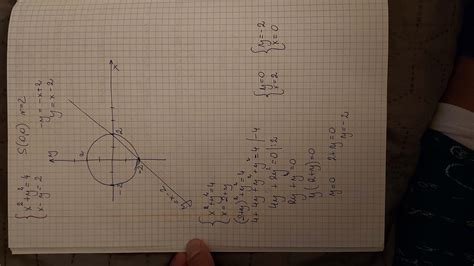 { x² + y² = 4
x - y = 2
S(0,0) r=2
-y = -x+2
y = x-2
y
x
2
2
-2
-2
{ x² + y² = 4
x = 2+y
(2+y)² + y² = 4
4+4y+y²+y² = 4 |-4
4y + 2y² = 0 |:2
2y + y² = 0
y(2+y) = 0
y=0 2+y=0
y=-2
{ y=0
x=2
{ y=-2
x=0